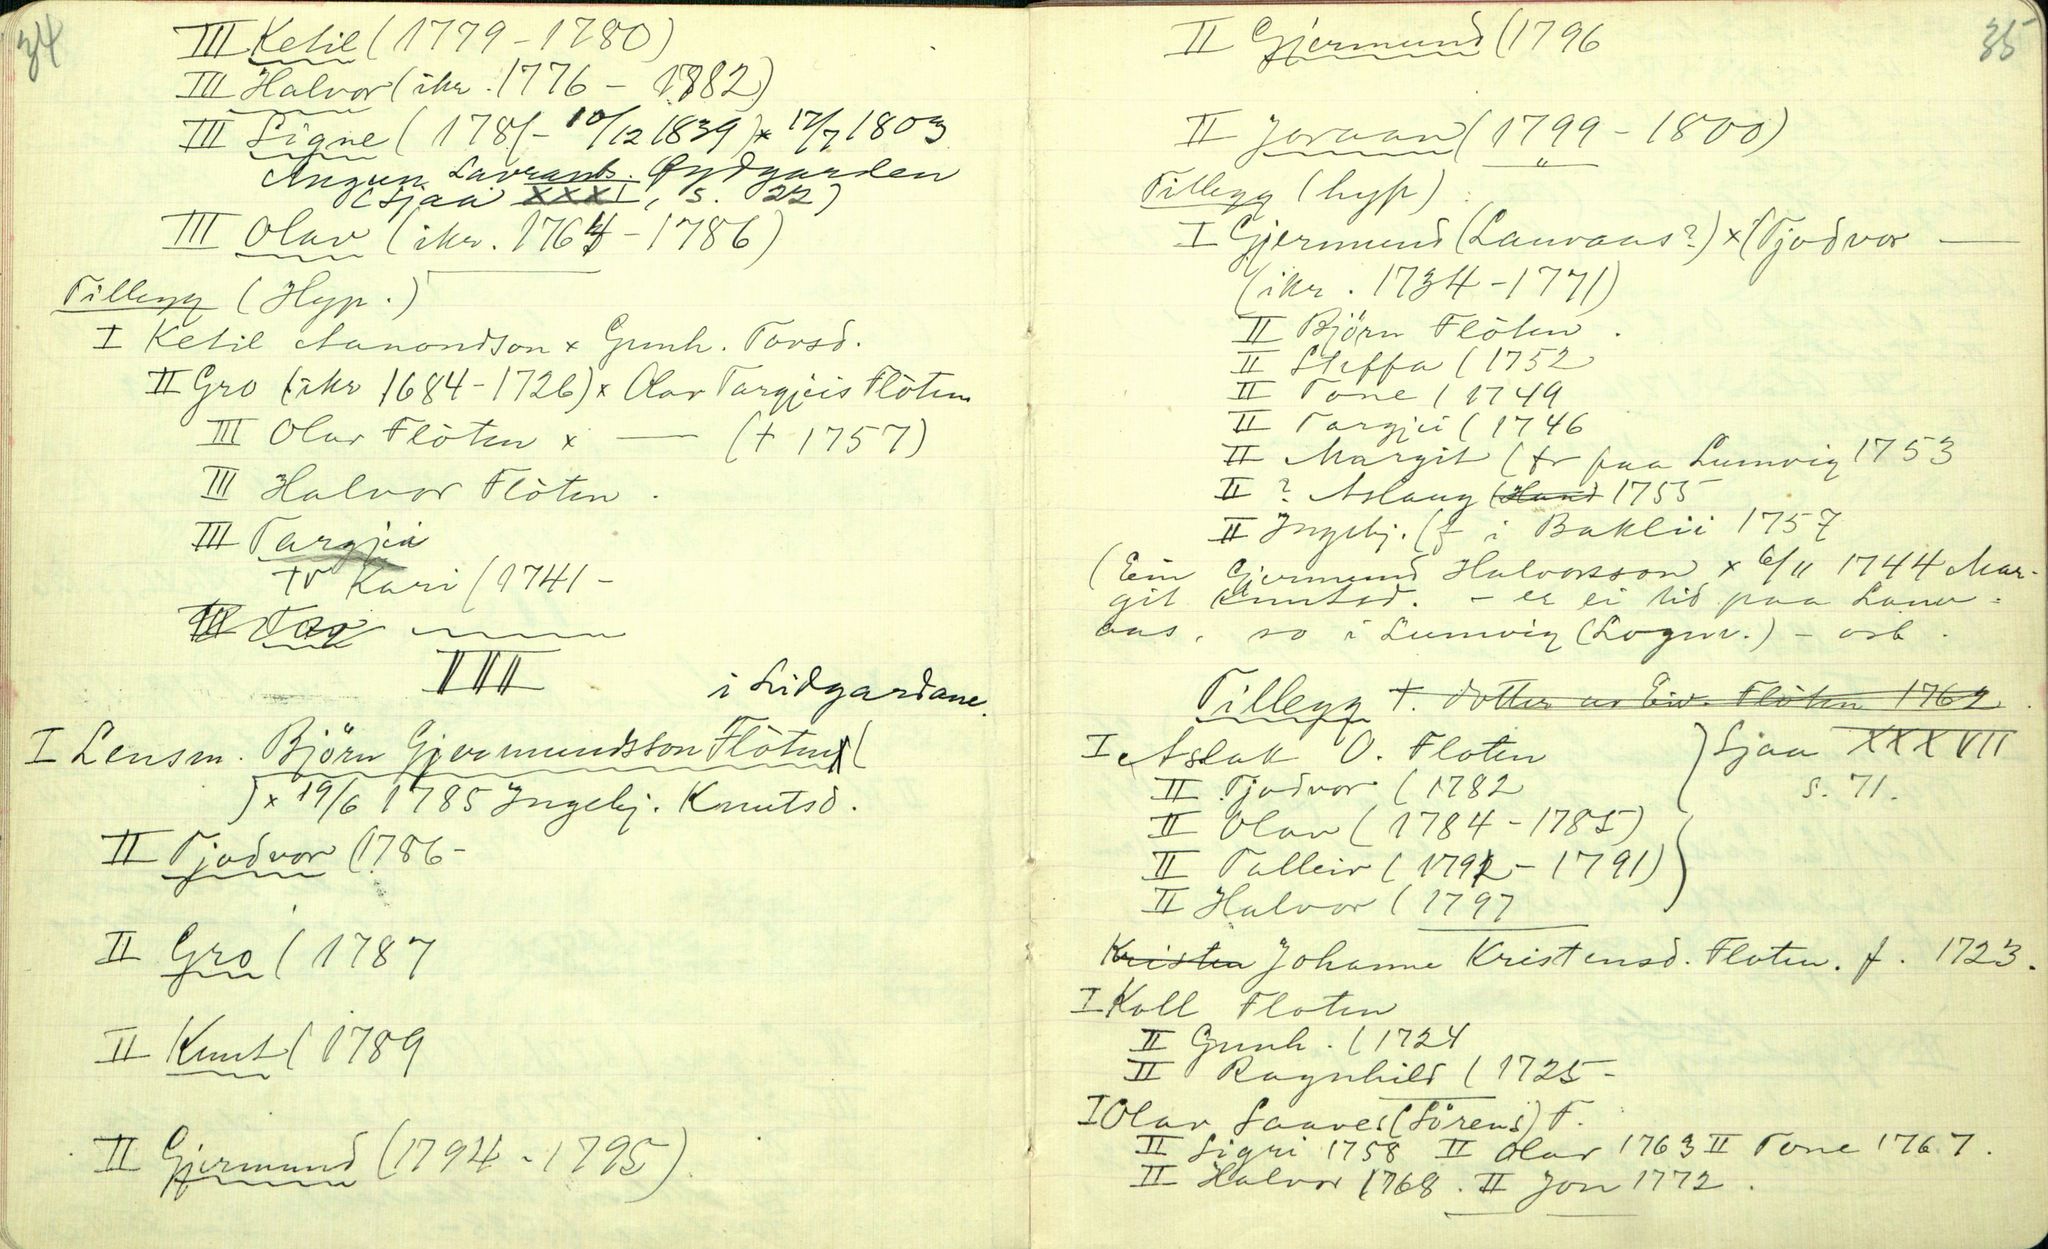 34
III Ketil (1779 - 1780)
III Halvor (ikr. 1776 - 1882)
III Signe (1781 - 10/12 1839) x 17/7 1803
Angun Lavrants. Øydgarden
(Sjaa XXXI, s. 22)
III Olav (ikr. 1764 - 1786)
Tillegg (Hyp.)
I Ketil Aanondson x Gunh. Torsd.
II Gro (ikr 1684 - 1726) x Olav Targjeis Flöten
III Olav Flöten x — († 1757)
III Halvor Flöten.
III Targjei
IV Kari (1741 -
III
VII
i Lidgardane.
I Lensm. Björn Gjermundsson Flöten (
) x 19/6 1785 Ingebj. Knutsd.
II Tjodvor (1786 -
II Gro (1787
II Knut (1789
II Gjermund (1794 - 1795)
35
II Gjermund (1796
II Joraan (1799 - 1800)
Tillegg (hyp)
I Gjermund (Lauvaas?) x (Tjodvor —
(ikr. 1734 - 1771)
II Björn Flöten.
II Steffa (1752
II Tone (1749
II Targjei (1746
II Margit (fr paa Lumvig 1753
II ? Aslaug (Hans 1755
II Ingebj. (f i Baklii 1757
(Ein Gjermund Halvorsson x 6/11 1744 Mar-
git Knutsd. - er ei tid paa Lauv-
aas, so i Lumvig (Lognv.) - osb.
Tillegg †. dotter av Eiv. Flöten 1762.
I Aslak O. Floten } Sjaa XXXVII
II Tjodvor (1782 s. 71.
II Olav (1784 - 1785)
II Talleiv (1791 - 1791)
II Halvor (1797
Kristen Johanne Kristensd. Floten. f. 1723.
I Koll Floten
II Gunh. (1724
II Ragnhild (1725 -
I Olav Saaves (Sörens) F.
II Sigri 1758 II Olav 1763 II Tone 1767.
II Halvor 1768. II Jon 1772.